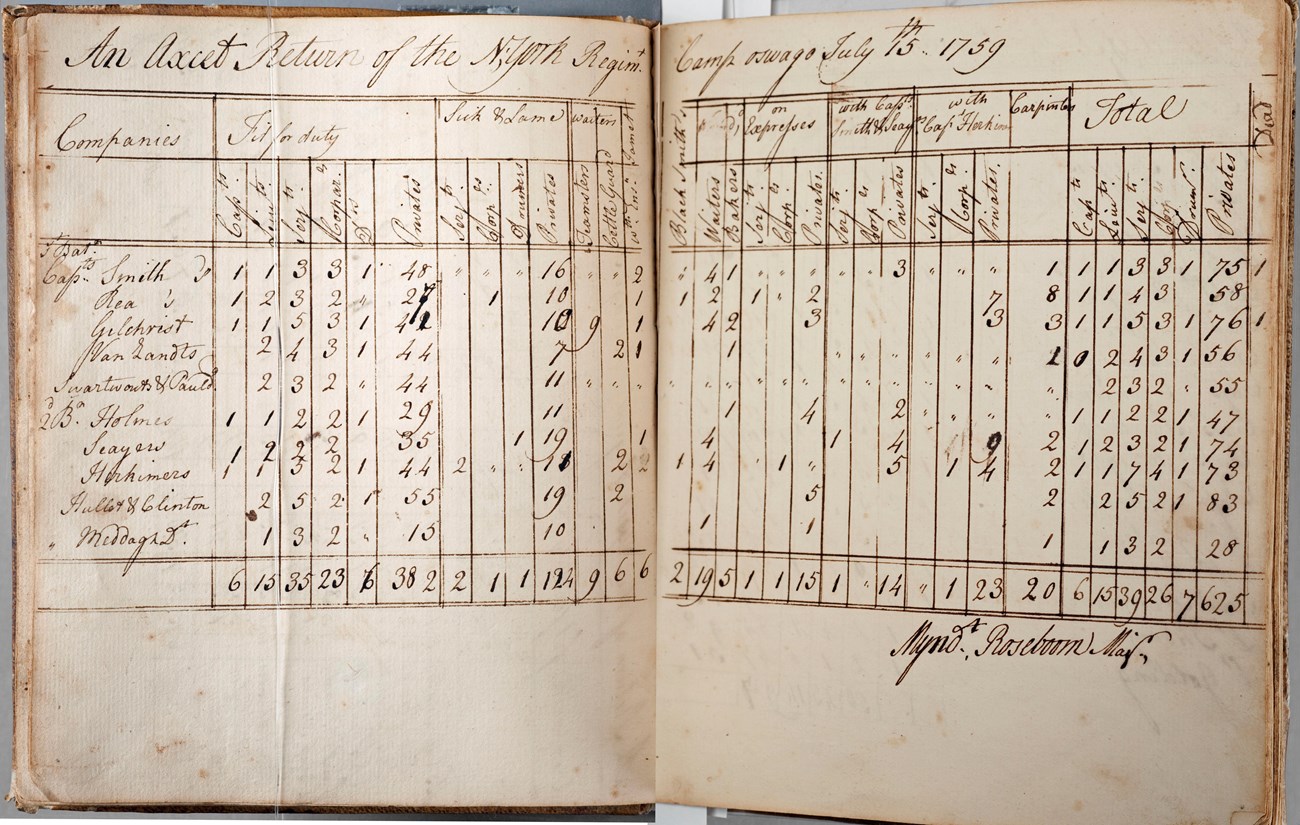 An Axcet Return of the N,York Regimt. Camp oswago July 15th.. 1759
Companies Fit for duty Sick & Lame waiters Black Smiths on Expresses with Capts. Smith & Seayrs with Capt Herkim Carpinters Total Dead
Capts. Lieuts. Serjts. Corpar.s Ds Privates Serjts. Corp.s Drumers Privates Teamsters Cettle Guard Black Smiths Waters Bakers Serjts. Corp.s Privates. Serjts. Corps Privates Serjts. Corp.s Privates. Capts Lieuts. Serjts. Corp.s Drums. Privates
1 Batn.
Capts. Smith Do 1 1 3 3 1 48 " " " 16 " " 2 " 4 1 " " " " " 3 " " " 1 1 1 3 3 1 75 1
Rea s 1 2 3 2 " 27 1 10 1 1 2 1 " 2 7 8 1 1 4 3 58
Gilchrist 1 1 5 3 1 42 10 9 1 4 2 3 3 3 1 1 5 3 1 76 1
Van Zandts 2 4 3 1 44 7 2 1 1 " " " " " " 1 0 2 4 3 1 56
Swartwouts & Pauld 2 3 2 " 44 11 " " " " " " " " " " " " " " " " 2 3 2 " 55
2d Bn. Holmes 1 1 2 2 1 29 11 1 4 2 " " " " 1 1 2 2 1 47
Seayers 1 2 2 2 35 1 19 1 4 1 4 9 2 1 2 3 2 1 74
Herkimers 1 1 5 2 1 44 2 " " 11 2 2 1 4 1 " 5 1 4 2 1 1 7 4 1 73
Hullet & Clinton 2 5 2 1 55 19 2 5 2 2 5 2 1 83
" Meddagh Dt. 1 3 2 " 15 10 1 1 1 1 3 2 28
6 15 35 23 6 382 2 1 1 124 9 6 6 2 19 5 1 1 15 1 " 14 " 1 23 20 6 15 39 26 7 625
Myndt. Roseboom Majr.